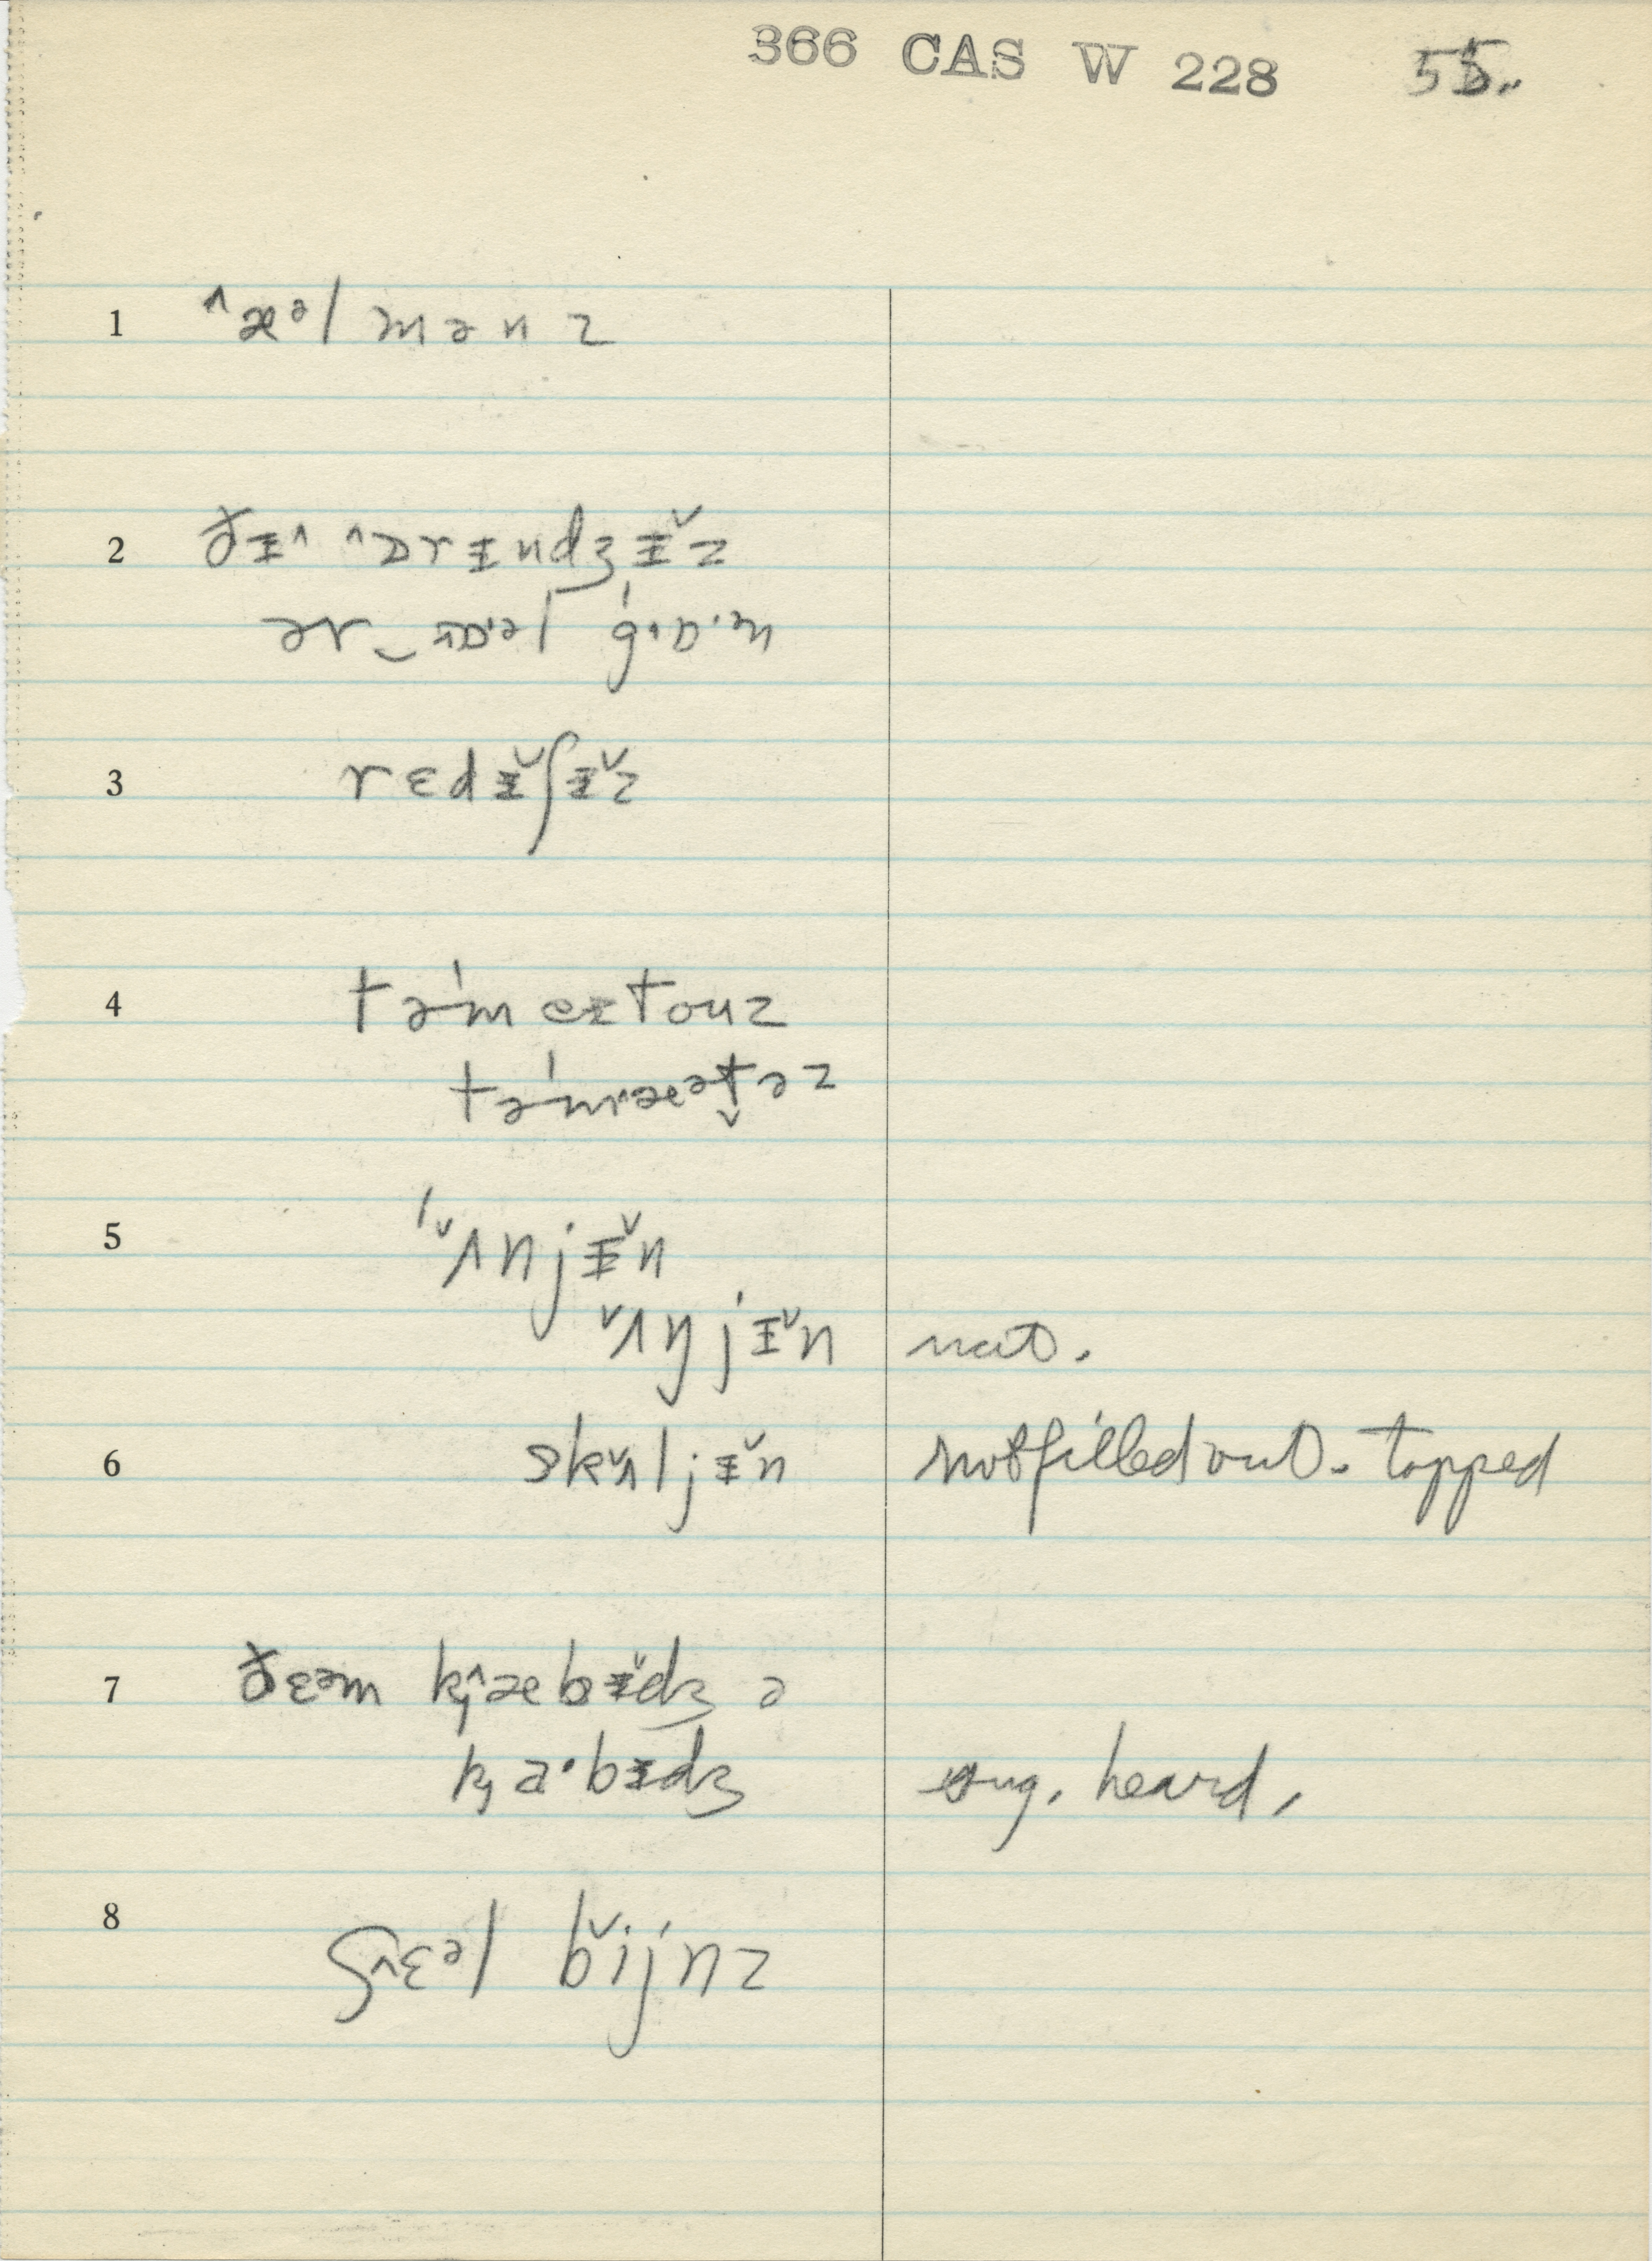 366 CAS W 228 55.
1 ˄æᵊlmənz
2 ðɪ˄ ˄ɒrɪndʒɪ˅z
ər‿ gɒ·m
3 rɛdɪ˅ʃɪ˅z
4 təˈmeɪtouz
təˈm˄æətəz
5 ˈ˅ʌnjɪ˅n
˅ʌŋjɪ˅n nat.
6 sk˅ʌljɪ˅n not filled out. topped
7 ðɛəm k̟˄æbɪ˅dʒ ə
k̟a·bɪdʒ sug. heard,
8 ʃ˄ɛᵊl b˅ijnz